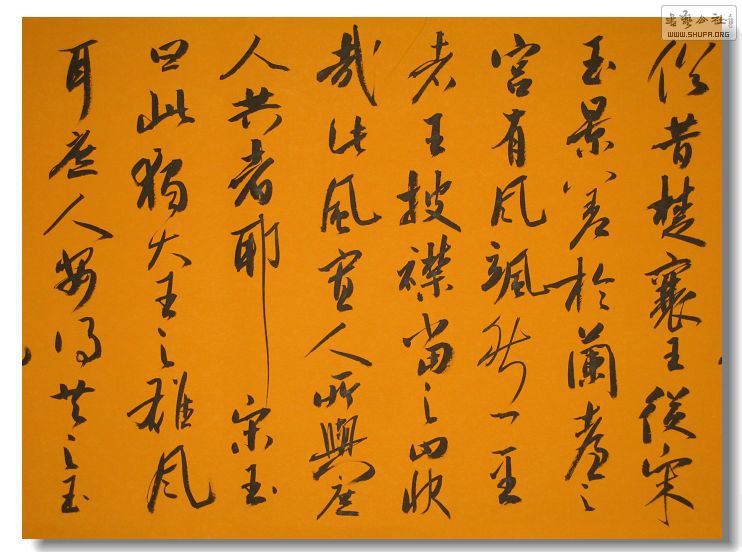 俗昔楚襄王從宋
玉景差於蘭臺之
宮有風颯然至
者王披襟當之曰快
哉此風寡人所與庶
人共者耶 宋玉
曰此獨大王之雄風
耳庶人安得共之玉
書藝公社
WWW.SHUFA.ORG